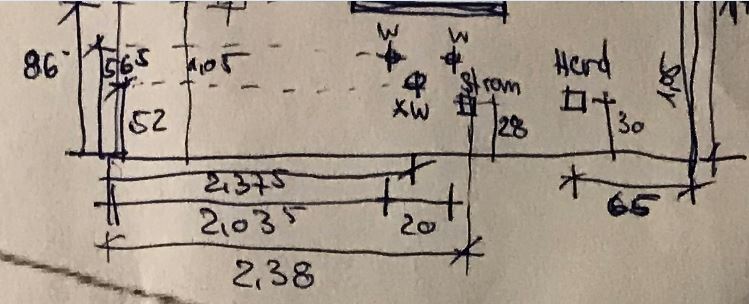 W W
86 56⁵ 1,05 Strom Herd
XW
52 28 30
2,37⁵ 65
2,03⁵ 20
2,38